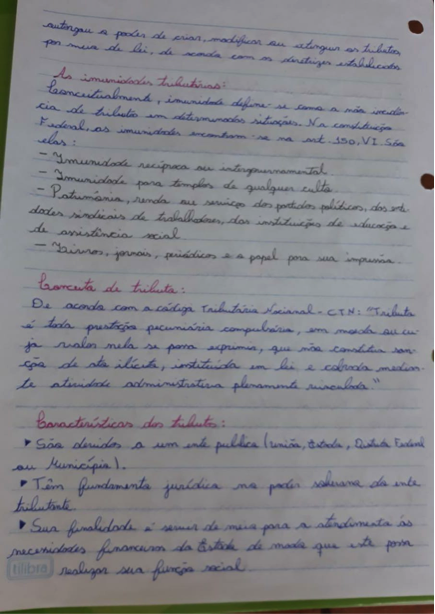 outorgou o poder de criar, modificar ou extinguir os tributos
por meio de lei, de acordo com as diretrizes estabelecidas
As imunidades tributárias:
Conceitualmente, imunidade define-se como a não incidên-
cia de tributo em determinadas situações. Na constituição
Federal, as imunidades encontram-se no art. 150, VI. São
elas:
- Imunidade recíproca ou intergovernamental
- Imunidade para templos de qualquer culto
- Patrimônio, renda ou serviços dos partidos políticos, das enti-
dades sindicais de trabalhadores, das instituições de educação e
de assistência social
- Livros, jornais, periódicos e o papel para sua impressão.
Conceito de tributo:
De acordo com o código Tributário Nacional - CTN: "Tributo
é toda prestação pecuniária compulsória, em moeda ou cu-
jo valor nela se possa exprimir, que não constitua san-
ção de ato ilícito, instituída em lei e cobrada median-
te atividade administrativa plenamente vinculada"
Características dos tributos:
▸ São devidos a um ente público (União, Estado, Distrito Federal
ou Município).
▸ Têm fundamento jurídico no poder soberano do ente
tributante.
▸ Sua finalidade é servir de meio para o atendimento às
necessidades financeiras do Estado de modo que este possa
tilibra realizar sua função social